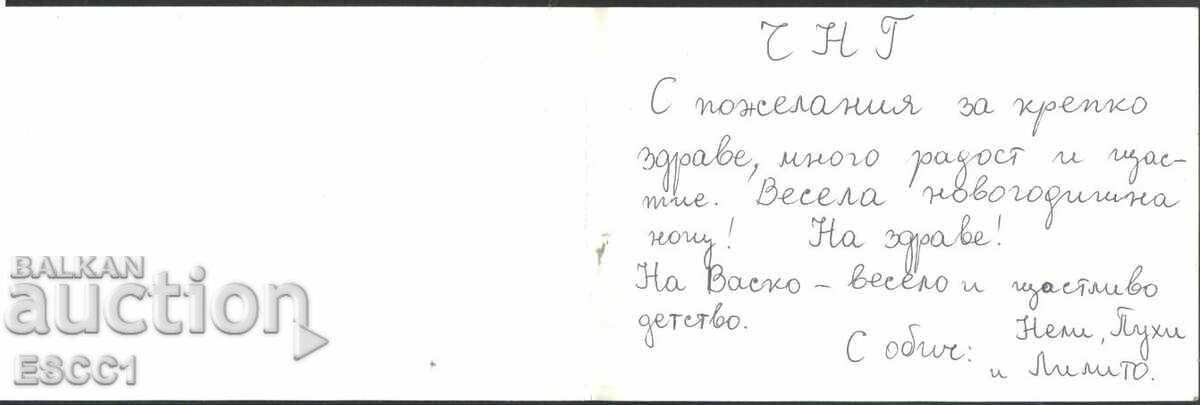 ЧНГ
С пожелания за крепко
здраве, много радост и щас-
тие. Весела новогодишна
нощ! На здраве!
На Васко – весело и щастливо
детство.
С обич: Нели, Пухи
и Лилито.
BALKAN
auction
ESCC1